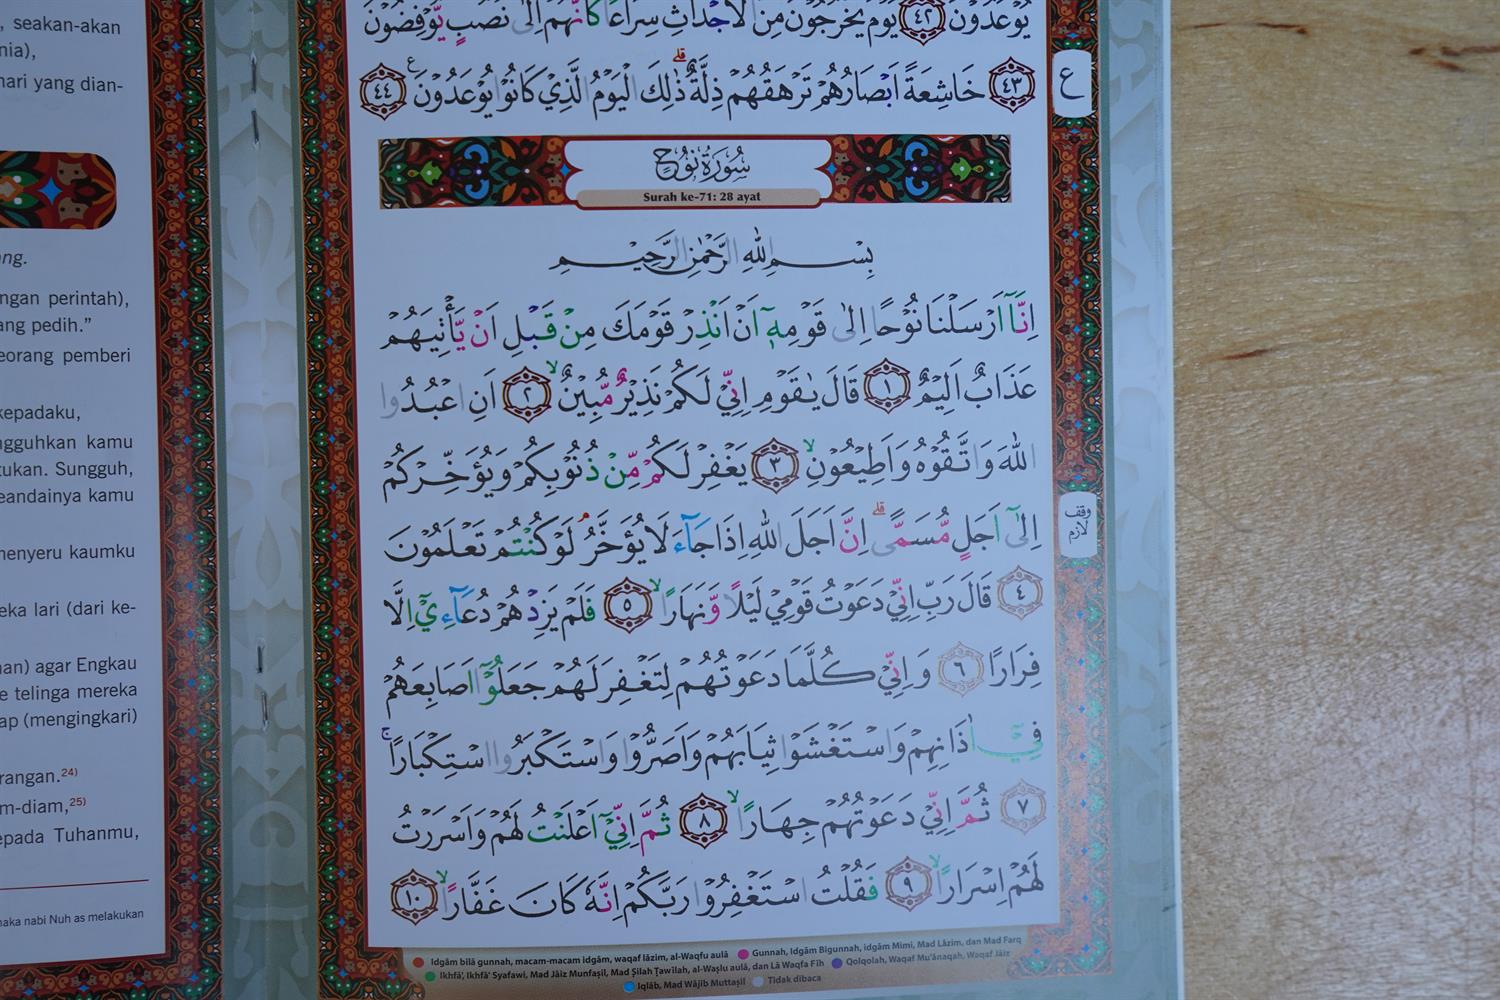 , seakan-akan
nia),
hari yang dian-
ang.
ngan perintah),
ang pedih.”
eorang pemberi
kepadaku,
ngguhkan kamu
tukan. Sungguh,
eandainya kamu
menyeru kaumku
eka lari (dari ke-
an) agar Engkau
e telinga mereka
ap (mengingkari)
rangan.24)
m-diam,25)
epada Tuhanmu,
maka nabi Nuh as melakukan
يُوْعَدُوْنَ ٤٢ يَوْمَ يَخْرُجُوْنَ مِنَ الْاَجْدَاثِ سِرَاعًا كَاَنَّهُمْ اِلٰى نُصُبٍ يُّوْفِضُوْنَ
٤٣ خَاشِعَةً اَبْصَارُهُمْ تَرْهَقُهُمْ ذِلَّةٌ ۗذٰلِكَ الْيَوْمُ الَّذِيْ كَانُوْا يُوْعَدُوْنَ ࣖ ٤٤
ع
سُوْرَةُ نُوْحٍ
Surah ke-71: 28 ayat
بِسْمِ اللّٰهِ الرَّحْمٰنِ الرَّحِيْمِ
اِنَّآ اَرْسَلْنَا نُوْحًا اِلٰى قَوْمِهٖٓ اَنْ اَنْذِرْ قَوْمَكَ مِنْ قَبْلِ اَنْ يَّأْتِيَهُمْ
عَذَابٌ اَلِيْمٌ ١ قَالَ يٰقَوْمِ اِنِّيْ لَكُمْ نَذِيْرٌ مُّبِيْنٌۙ ٢ اَنِ اعْبُدُوا
اللّٰهَ وَاتَّقُوْهُ وَاَطِيْعُوْنِۙ ٣ يَغْفِرْ لَكُمْ مِّنْ ذُنُوْبِكُمْ وَيُؤَخِّرْكُمْ
اِلٰٓى اَجَلٍ مُّسَمًّىۗ اِنَّ اَجَلَ اللّٰهِ اِذَا جَاۤءَ لَا يُؤَخَّرُۘ لَوْ كُنْتُمْ تَعْلَمُوْنَ
وقف لازم
٤ قَالَ رَبِّ اِنِّيْ دَعَوْتُ قَوْمِيْ لَيْلًا وَّنَهَارًاۙ ٥ فَلَمْ يَزِدْهُمْ دُعَاۤءِيْٓ اِلَّا
فِرَارًا ٦ وَاِنِّيْ كُلَّمَا دَعَوْتُهُمْ لِتَغْفِرَ لَهُمْ جَعَلُوْٓا اَصَابِعَهُمْ
فِيْٓ اٰذَانِهِمْ وَاسْتَغْشَوْا ثِيَابَهُمْ وَاَصَرُّوْا وَاسْتَكْبَرُوا اسْتِكْبَارًاۚ
٧ ثُمَّ اِنِّيْ دَعَوْتُهُمْ جِهَارًاۙ ٨ ثُمَّ اِنِّيْٓ اَعْلَنْتُ لَهُمْ وَاَسْرَرْتُ
لَهُمْ اِسْرَارًاۙ ٩ فَقُلْتُ اسْتَغْفِرُوْا رَبَّكُمْ اِنَّهٗ كَانَ غَفَّارًاۙ ١٠
Idgām bilā gunnah, macam-macam idgām, waqaf lāzim, al-Waqfu aulā Gunnah, Idgām Bigunnah, idgām Mimi, Mad Lāzim, dan Mad Farq
Ikhfā', Ikhfā' Syafawi, Mad Jāiz Munfaṣil, Mad Ṣilah Ṭawīlah, al-Waṣlu aulā, dan Lā Waqfa Fīh Qolqolah, Waqaf Mu'ānaqah, Waqaf Jāiz
Iqlāb, Mad Wājib Muttaṣil Tidak dibaca